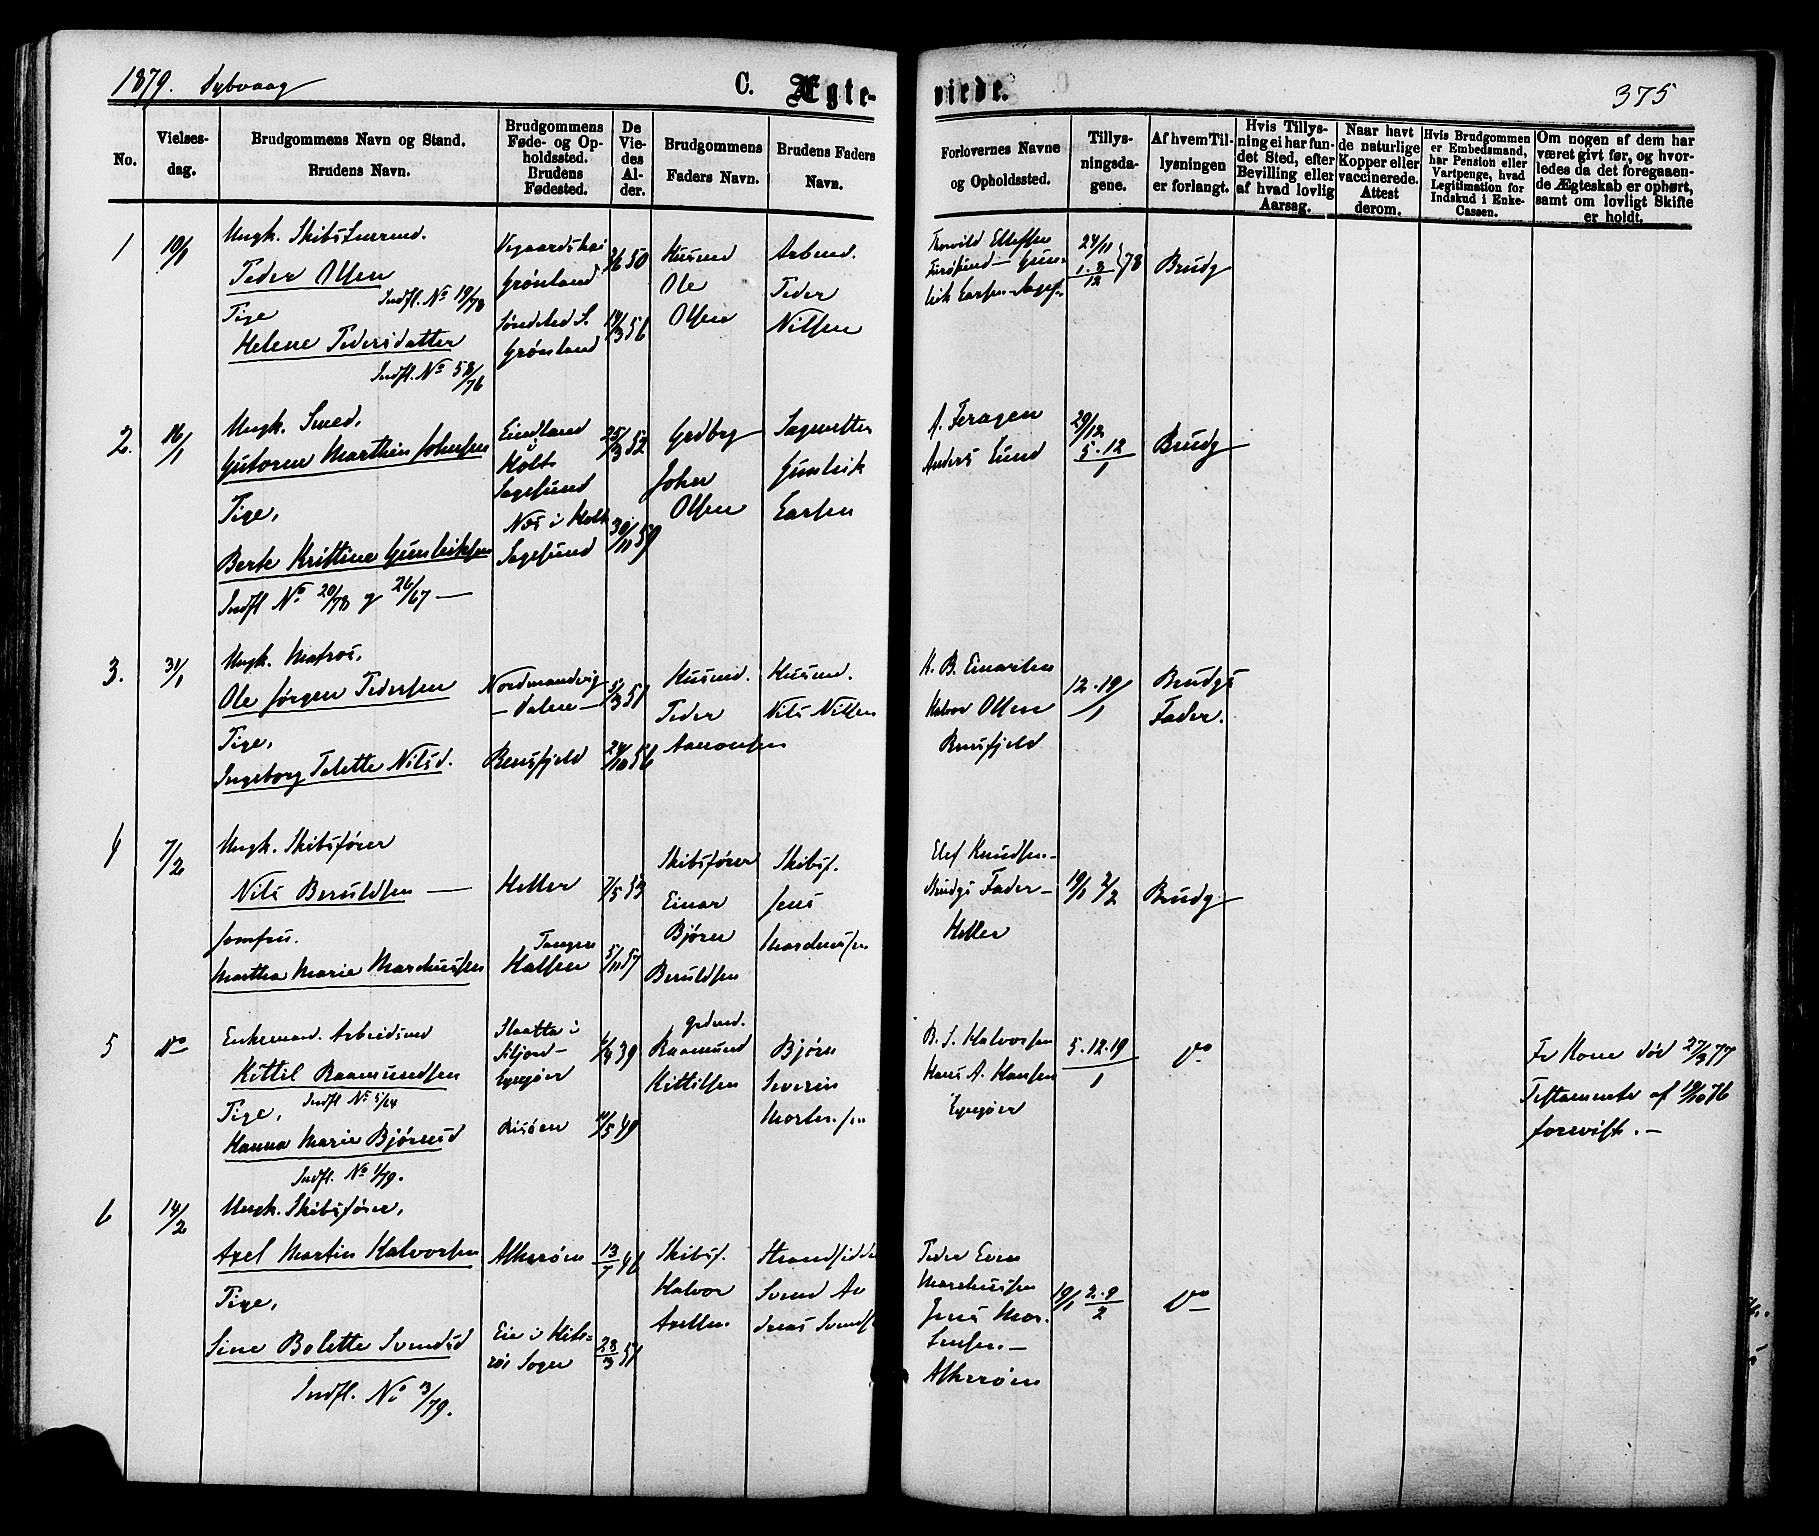 1879. Dybvaag
C. Ægte-
viede.
375
No.
Vielses-
dag.
Brudgommens Navn og Stand.
Brudens Navn.
Brudgommens
Føde- og Op-
holdssted.
Brudens
Fødested.
De
Vie-
des
Al-
der.
Brudgommens
Faders Navn.
Brudens Faders
Navn.
Forlovernes Navne
og Opholdssted.
Tillys-
ningsda-
gene.
Af hvem Til-
lysningen
er forlangt.
Hvis Tillys-
ning ei har fun-
det Sted, efter
Bevilling eller
af hvad lovlig
Aarsag.
Naar havt
de naturlige
Kopper eller
vaccinerede.
Attest
derom.
Hvis Brudgommen
er Embedsmand,
har Pension eller
Vartpenge, hvad
Legitimation for
Indskud i Enke-
Cassen.
Om nogen af dem har
været givt før, og hvor-
ledes da det foregaaen-
de Ægteskab er ophørt,
samt om lovligt Skifte
er holdt.
1
10/1
Ungk.
Peder Olsen
Indfl. No 19/78
Pige
Helene Pedersdatter
Indfl. No 58/76
Vegaardshei
Grønland
Søndeled S.
Grønland
50
14/3 56
Husmd
Ole
Olsen
Arbmd.
Peder
Nilsen
Thorvild Ellefsen
24/11
1.8/12 78
Brudg
2.
16/1
Ungk. Smed.
Gutorm Marthin Johnsen
Pige,
Berte Kristine Gunleiksen
Indfl No 20/78 og 26/67 —
Eindland
i
Holt
Sagesund
Næs i Holt
Sagesund
25/3 52
30/11 59
Grdbr
John
Olsen
Sagmester
Gunleik
Larsen
A. Feragen
Anders Lund
29/12
5.12/1
Brudg
3.
31/1
Ungk. Matros.
Ole Jørgen Pedersen
Pige,
Ingeborg Telette Nilsd.
Nordmandvig
— Dalene —
Rensfjeld
51
24/10 56
Husmd.
Peder
Aanonsen
Husmd.
Nils Nilsen
H. B. Einarsen
Halvor Olsen
Rensfjeld
12.19/1
Brudgs
Fader.
4
7/2
Ungk. Skibsfører
Nils Beruldsen —
Jomfru.
Martha Marie Marcussen
Heller
Tangen
Halsen
7/5 53
5/11 57
Skibsfører
Einar
Bjørn
Beruldsen
Skibsf.
Jens
Marcussen
Elef Knudsen —
Brudgs Fader —
Heller
19/1 2/2
Brudg
5
Do
Enkemand. Arbeidsmd
Kittil Raamundsen
Indfl No 5/24
Pige,
Hanna Marie Bjørnsd
Indfl. No 1/79.
Slaatta i
Siljord —
Risøen
39
11/5 49
Grdmd.
Raamund
Kittilsen
Bjørn
Severin
Mortensen
B. S. Halvorsen
Hans A. Hansen
5.12.19/1
Do
Fr Kone død 27/3 77
Testamente af 19/10 76
forevist. —
6
14/2
Ungk. Skibsfører,
Axel Martin Halvorsen
Pige,
Sine Bolette Svendsd
Indfl. No 3/79.
Askerøen
Eie i Hite-
røe Sogn
13/7 46
23/3 51
Skibsf.
Halvor
Axelsen
Strandsidder
Svend An
dreas Svends
Peder Even
Marcussen
Jens Mor-
tensen. —
Askerøen
19/1 2.9/2
Do